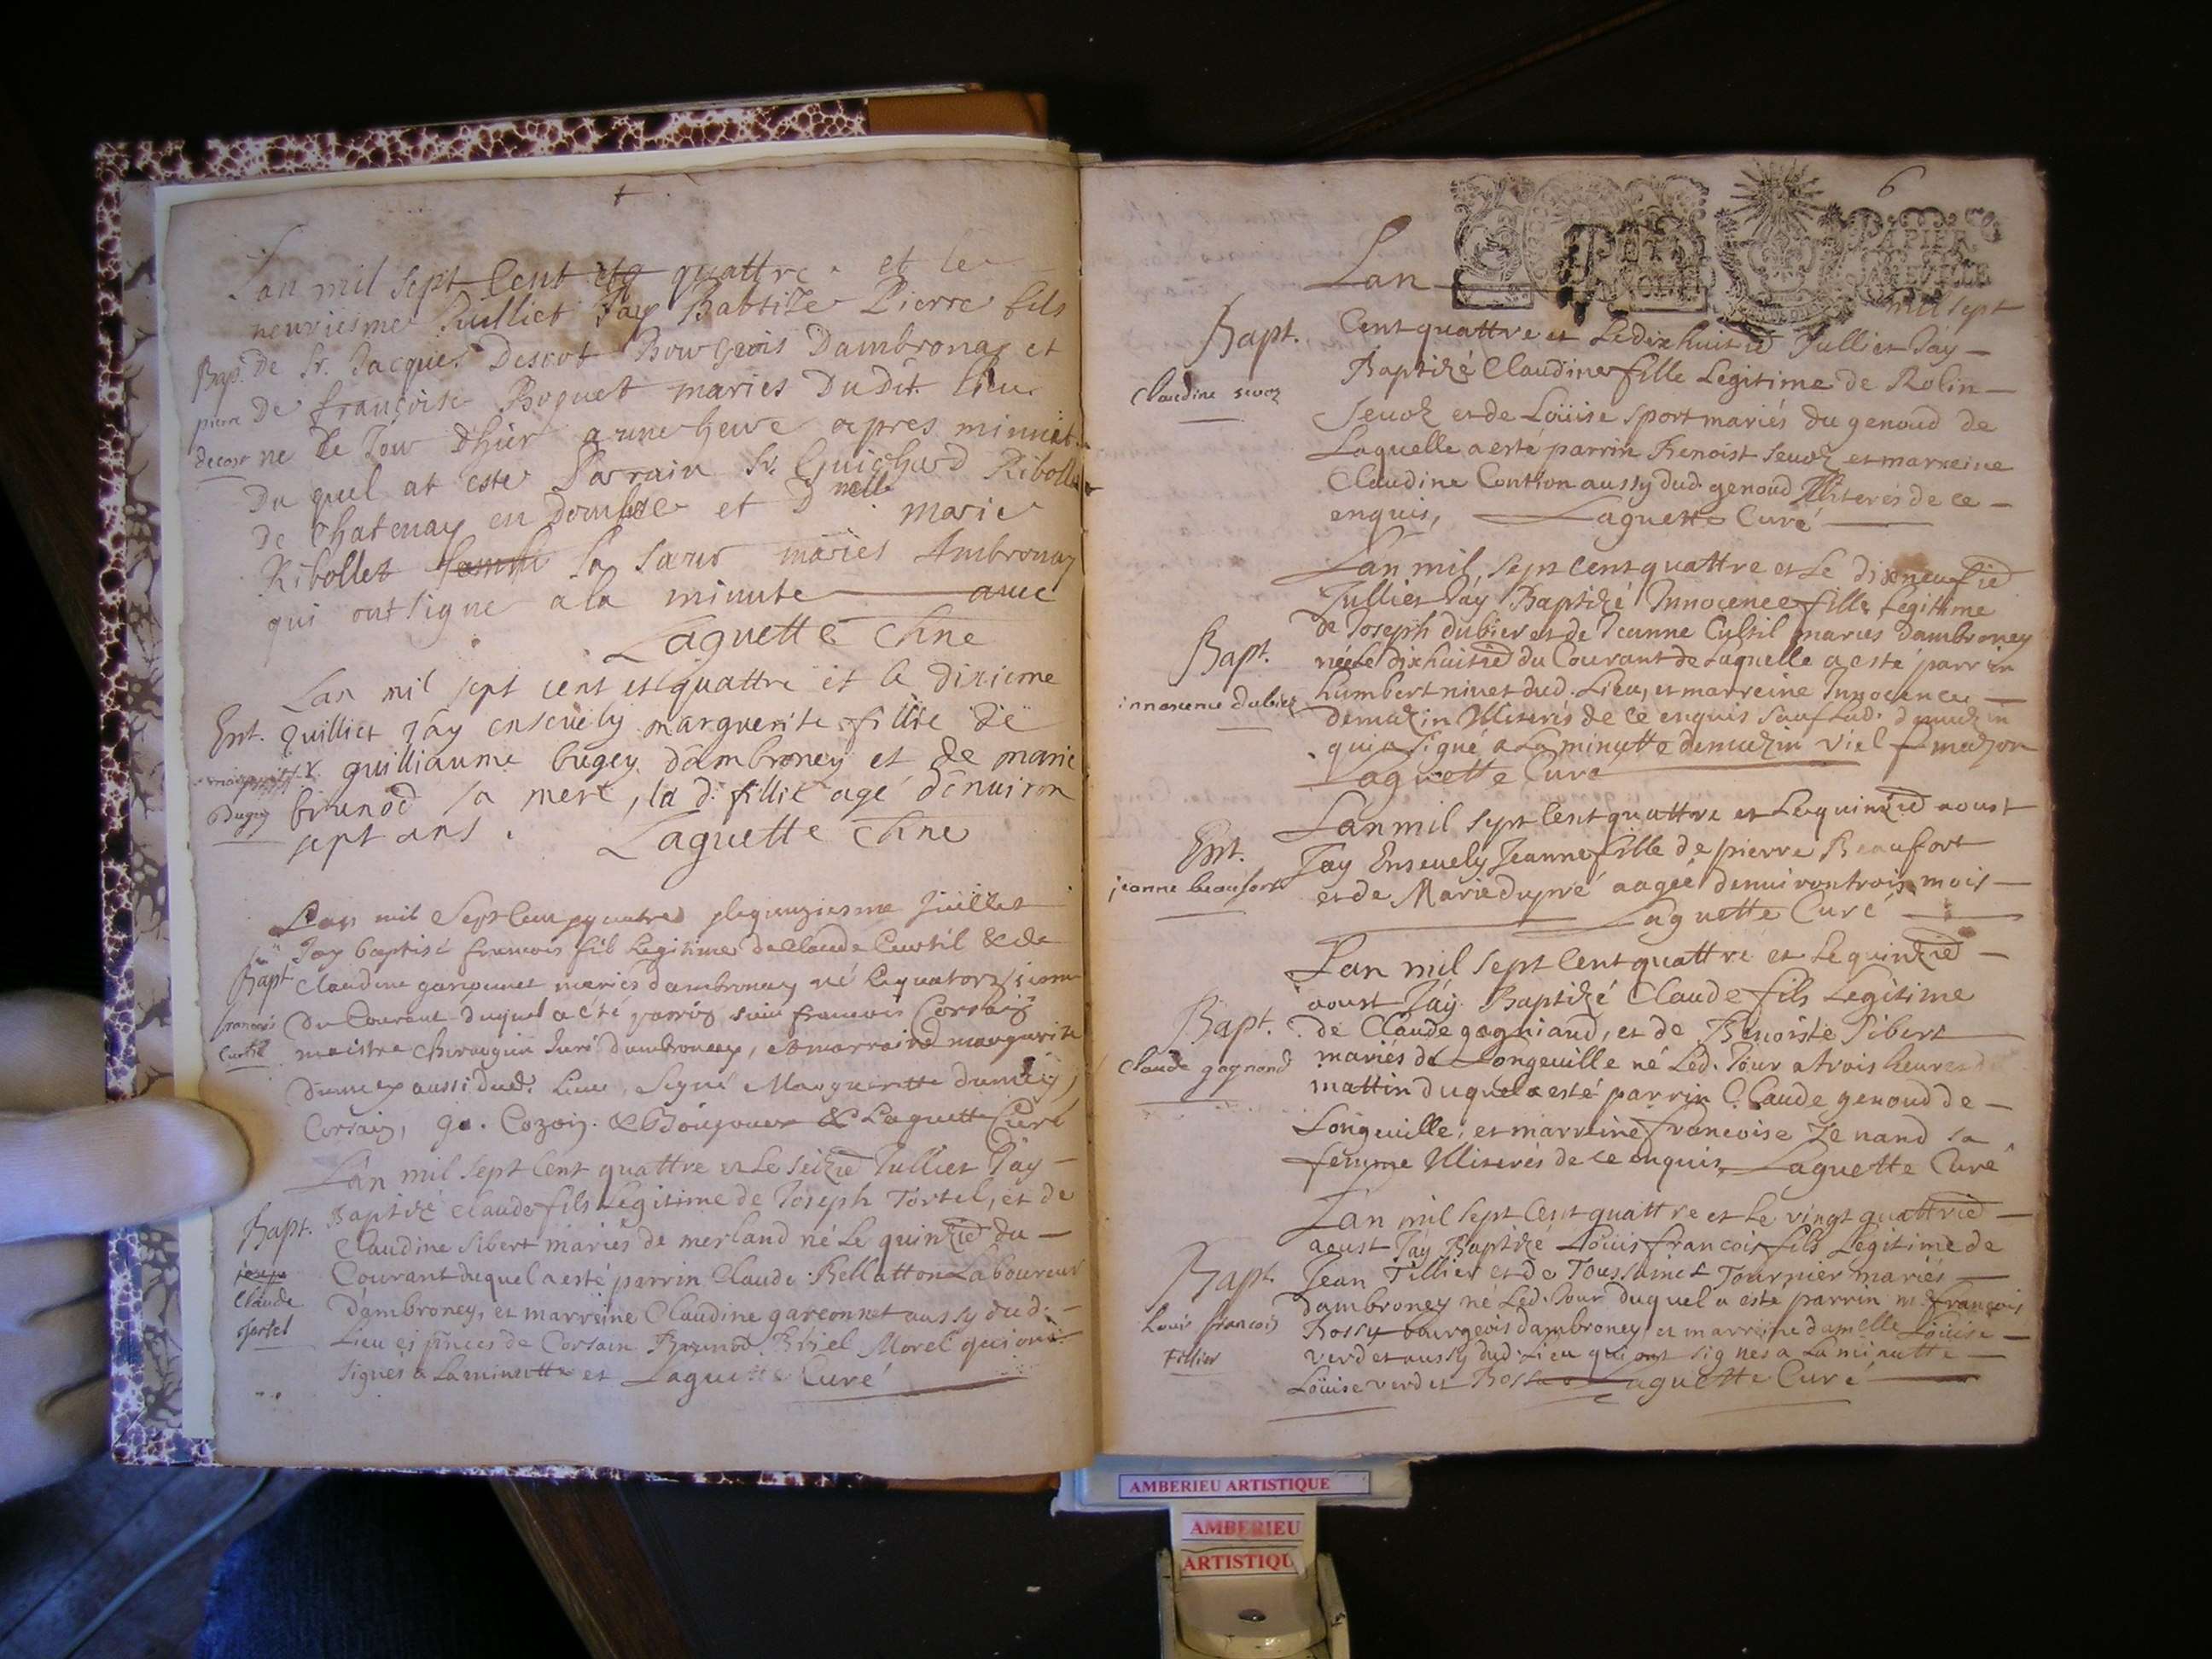 Lan mil sept Cent quattre et le
neuviesme Juilliet Jay Babtize Pierre fils
Bap. De Sr. Jacques Descot Bourgeois Dambronay et
pierre De françoise Boquet maries Dudit lieu
decost ne le Jour dhier a une heure apres minuit
Du quel at este Parrain Sr. Guichard Ribollet
De Chatenay en Dombe et Dmelle marie
Ribollet sa Sœur mariés Ambronay
qui ont signe a la minute avec
Laguette Cure
Lan mil sept cent et quattre et le dixieme
Ent. Juilliet Jay ensevely marguerite fillie de
guilliaume bugey dambroney et de marie
Bugey brunod sa mere, la d. fillie agé dênuiron
sept ans. Laguette Cure
Lan mil Sept Cent quatre le quinziesme Juillet
Jay baptisé francois fils Legitime de Claude Curtil & de
Bapt Claudine garçonnet mariés dambronay né Le quatorziesme
francois Du Courant duquel a été parrin francois Corsain
Curtil maistre chirurgien Juré dambroney, et marraine marguerite
dumey aussi dud. Lieu, Signé Marguerite dumey,
Corsain, Cozon. & Laguette Curé
Lan mil sept Cent quattre et Le seizie Jullier Jay
Bapt. Baptizé Claude fils Legitime de Joseph Tortel, et de
Claudine Sibert mariés de merland né Le quinzie du
joseph Courant duquel a esté parrin Claude Bellatton Laboureur
Claude
tortel d'ambroney, et marreine Claudine garconnet aussy dud.
Lieu es pnces de Corsain Brunod Morel qui ont
signés a La minutte et Laguette Curé
6
PAPIER
Lan mil sept
Bapt. Cent quattre et Le dix huitie Jullier Jay
Baptizé Claudine fille Legitime de Rolin
Claudine sevoz
Sevoz et de Loüise Sport mariés du genoud de
Laquelle a esté parrin Benoist Sevoz et marreine
Claudine Conthon aussy dud. genoud Illiterés de ce
enquis, Laguette Curé
Lan mil sept cent quattre et Le dixneufie
Jullier Jay Baptizé Innocence fille Legitime
de Joseph dubier et de Jeanne Cultil mariés dambroney
Bapt. née Le dixhuitie du Courant de Laquelle a esté parrin
innocence dubier humbert ninet dud. Lieu, et marreine Innocence
demuzin Illiterés de ce enquis sauf Lad. demuzin
qui a signé a La minutte demuzin
Laguette Curé
Lan mil sept Cent quattre et Le quinzie aoust
Ent. Jay Ensevely Jeanne fille de pierre Beaufort
jeanne beaufort et de Marie dupré aagée denuiron trois mois
Laguette Curé
Lan mil sept Cent quattre et Le quinzie
aoust Jay Baptizé Claude fils Legitime
Bapt. de Claude gagniand, et de Benoiste Pibert
Claude gagnand mariés de Longeuille né Led. Jour a trois heures
mattin duquel a esté parrin Claude genoud de
Longeuille, et marreine francoise Zenand sa
femme Illiterés de ce enquis, Laguette Curé
Lan mil sept Cent quattre et Le vingt quattrie
aoust Jay Baptizé Loüis francois fils Legitime de
Bapt. Jean Tillier et de Toussaincte Tournier mariés
Louis francois dambroney né Led. Jour duquel a esté parrin m. francois
Tillier Bossu bourgeois dambroney et marreine damelle Loüise
verdet aussy dud. Lieu qui ont signés a La minutte
Loüise verdet Bossu Laguette Curé
AMBERIEU ARTISTIQUE
AMBERIEU
ARTISTIQU